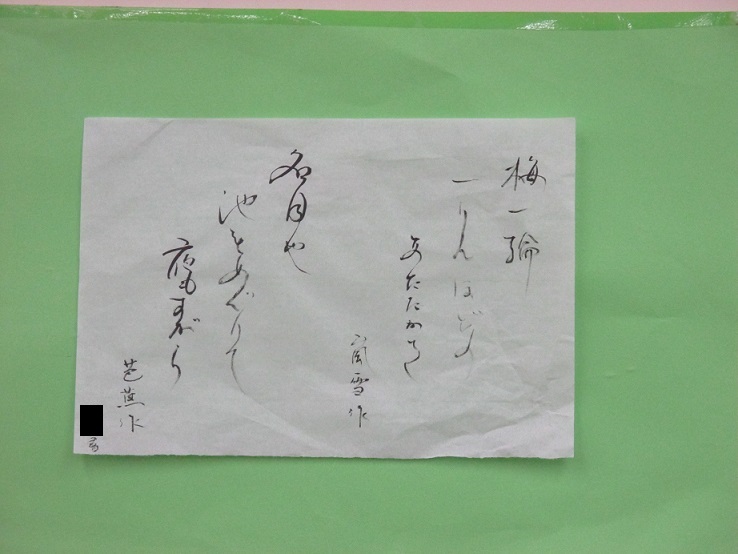 梅一輪
一りんほどの
あたたかさ
嵐雪作
名月や
池をめぐりて
夜もすがら
芭蕉作